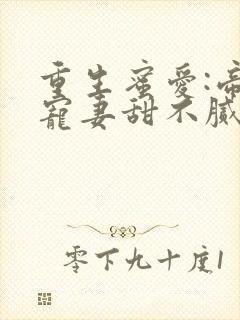 重生蜜愛:帝
寵妻甜不膩
零下九十度1